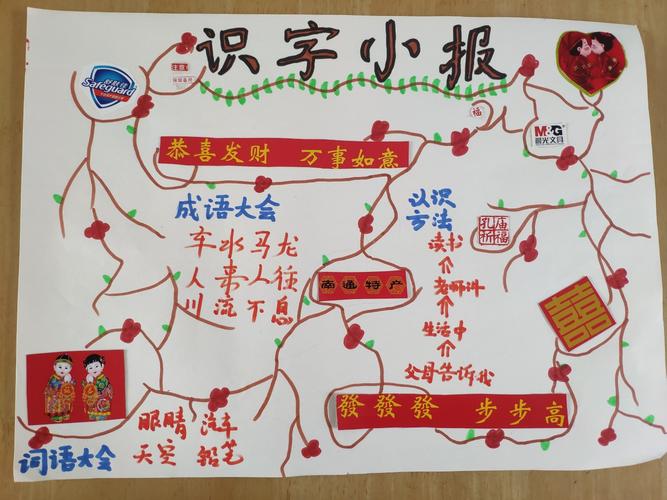 识字小报
舒肤佳
Safeguard
福
M&G
晨光文具
恭喜发财 万事如意
成语大会
车水马龙
人来人往
川流不息
认识
方法
读书
老师讲
生活中
父母告诉我
孔庙
祈福
南通特产
囍
發發發 步步高
眼睛 汽车
天空 铅笔
词语大会